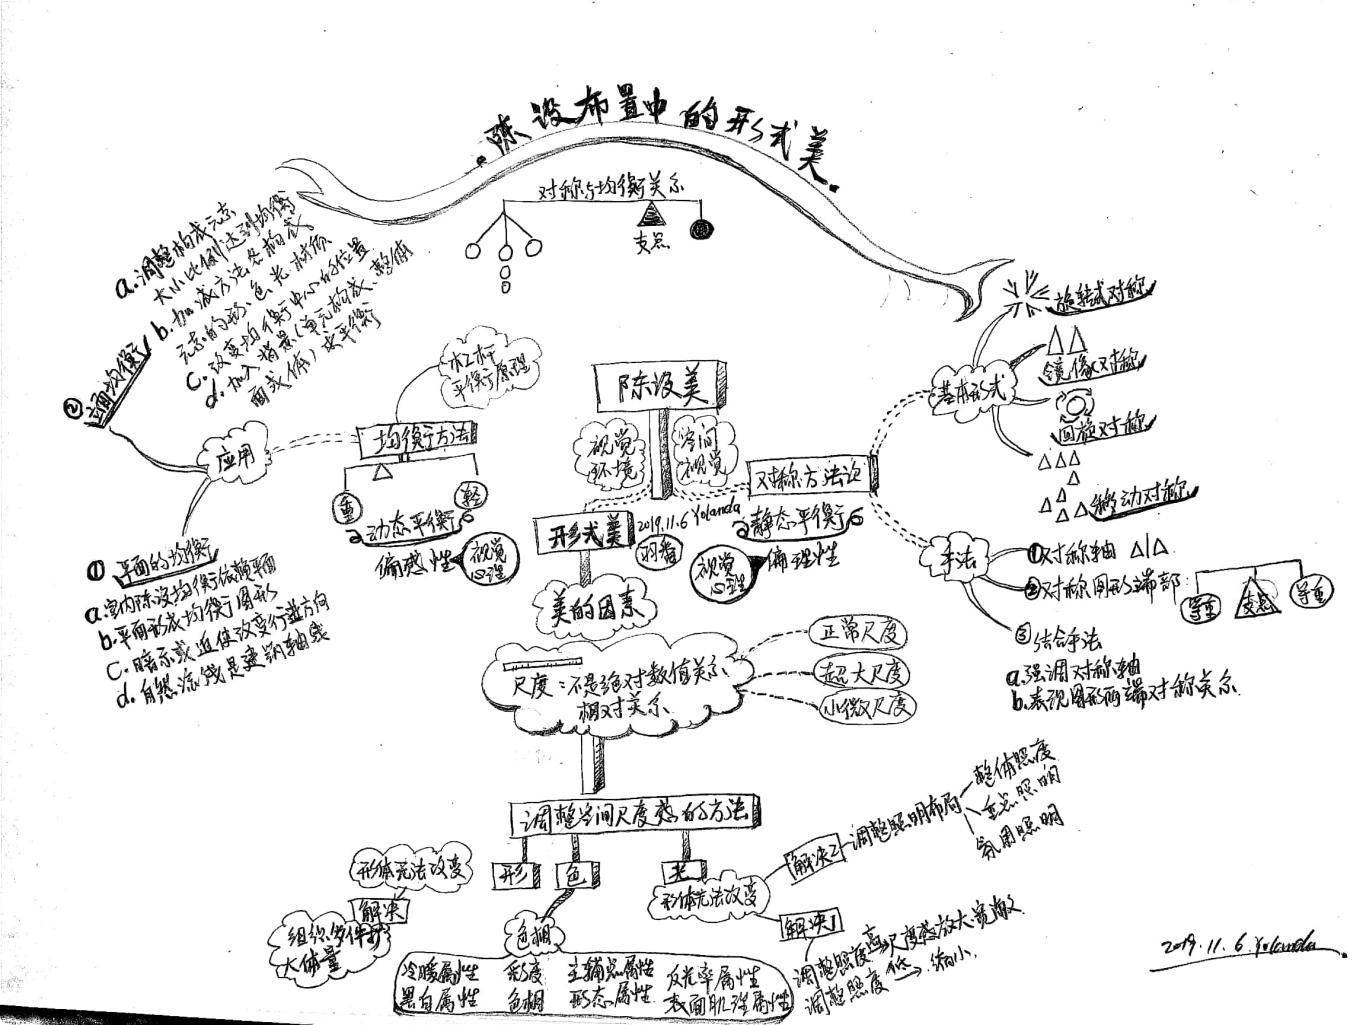 陈设布置中的形式美
对称与均衡关系
支点
陈设美
视觉
环境
空间
视觉
形式美
2019.11.6 Yolanda
美的因素
尺度：不是绝对数值关系
相对关系
正常尺度
超大尺度
小微尺度
杠杆
平衡原理
均衡方法
重
轻
动态平衡
偏感性
视觉
心理
应用
②立面均衡
a.调整构成元素
大小比例达到均衡
b.加减方法各构成
元素的形、色、光、材质
c.改变均衡中心的位置
d.加入背景(单元构成、整体
面或体)求平衡
①平面的均衡
a.室内陈设均衡依赖平面
b.平面形成均衡图形
c.暗示或迫使改变行进方向
d.自然流线是建筑轴线
对称方法论
静态平衡
视觉
心理
偏理性
基本形式
旋转式对称
镜像对称
回旋对称
移动对称
手法
①对称轴
②对称图形端部:
等重
支点
等重
③结合手法
a.强调对称轴
b.表现图形两端对称关系
调整空间尺度感的方法
形
色
光
形体无法改变
解决
组织多件扩
大体量
色相
冷暖属性 彩度 主辅点属性 反光率属性
黑白属性 色相 形态属性 表面肌理属性
形体无法改变
解决2
调整照明布局
整体照度
重点照明
氛围照明
解决1
调整照度高→尺度感放大
调整照度低→缩小.
2019.11.6.Yolanda